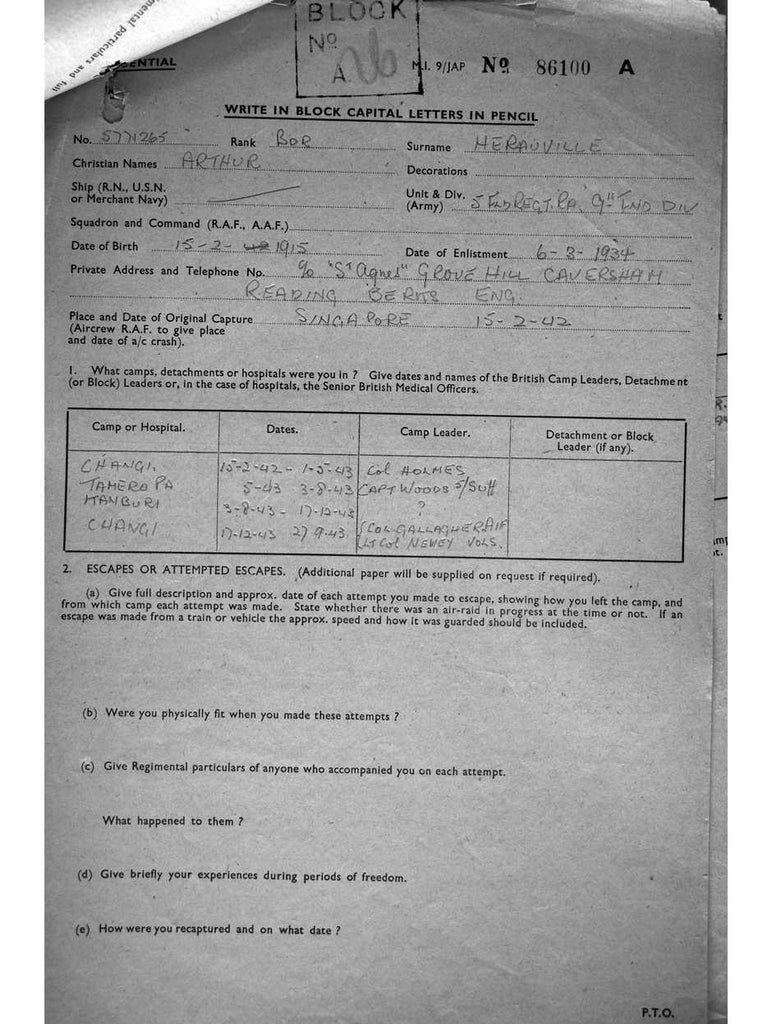 mental particulars and full
BLOCK
Nº
A 26
ENTIAL
M.I. 9/JAP Nº 86100 A
WRITE IN BLOCK CAPITAL LETTERS IN PENCIL
No. 5771265 Rank BDR Surname HERAUVILLE
Christian Names ARTHUR Decorations
Ship (R.N., U.S.N. or Merchant Navy) Unit & Div. (Army) 5 FND REGT. RA. 9TH IND DIV
Squadron and Command (R.A.F., A.A.F.)
Date of Birth 15-2- 1915 Date of Enlistment 6-3-1934
Private Address and Telephone No. c/o "St Agnes" GROVE HILL CAVERSHAM
READING BERKS ENG.
Place and Date of Original Capture SINGAPORE 15-2-42
(Aircrew R.A.F. to give place
and date of a/c crash).
1. What camps, detachments or hospitals were you in ? Give dates and names of the British Camp Leaders, Detachment
(or Block) Leaders or, in the case of hospitals, the Senior British Medical Officers.
Camp or Hospital. Dates. Camp Leader. Detachment or Block Leader (if any).
CHANGI. 15-2-42 - 1-5-43 Col HOLMES
TAMERO PA 5-43 3-8-43 CAPT WOODS
KANBURI 3-8-43 - 17-12-43 ?
CHANGI 17-12-43 27-9-43 COL. GALLAGHER AIF
LT Col NEWEY VOLS.
2. ESCAPES OR ATTEMPTED ESCAPES. (Additional paper will be supplied on request if required).
(a) Give full description and approx. date of each attempt you made to escape, showing how you left the camp, and
from which camp each attempt was made. State whether there was an air-raid in progress at the time or not. If an
escape was made from a train or vehicle the approx. speed and how it was guarded should be included.
(b) Were you physically fit when you made these attempts ?
(c) Give Regimental particulars of anyone who accompanied you on each attempt.
What happened to them ?
(d) Give briefly your experiences during periods of freedom.
(e) How were you recaptured and on what date ?
P.T.O.